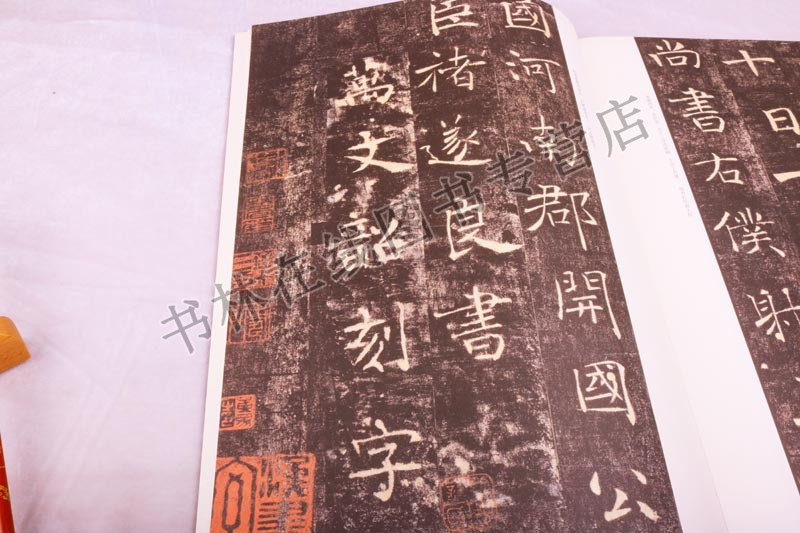 十日一
尚書右僕射
國河南郡開國公
臣褚遂良書
萬文韶刻字
书林在线图书专营店